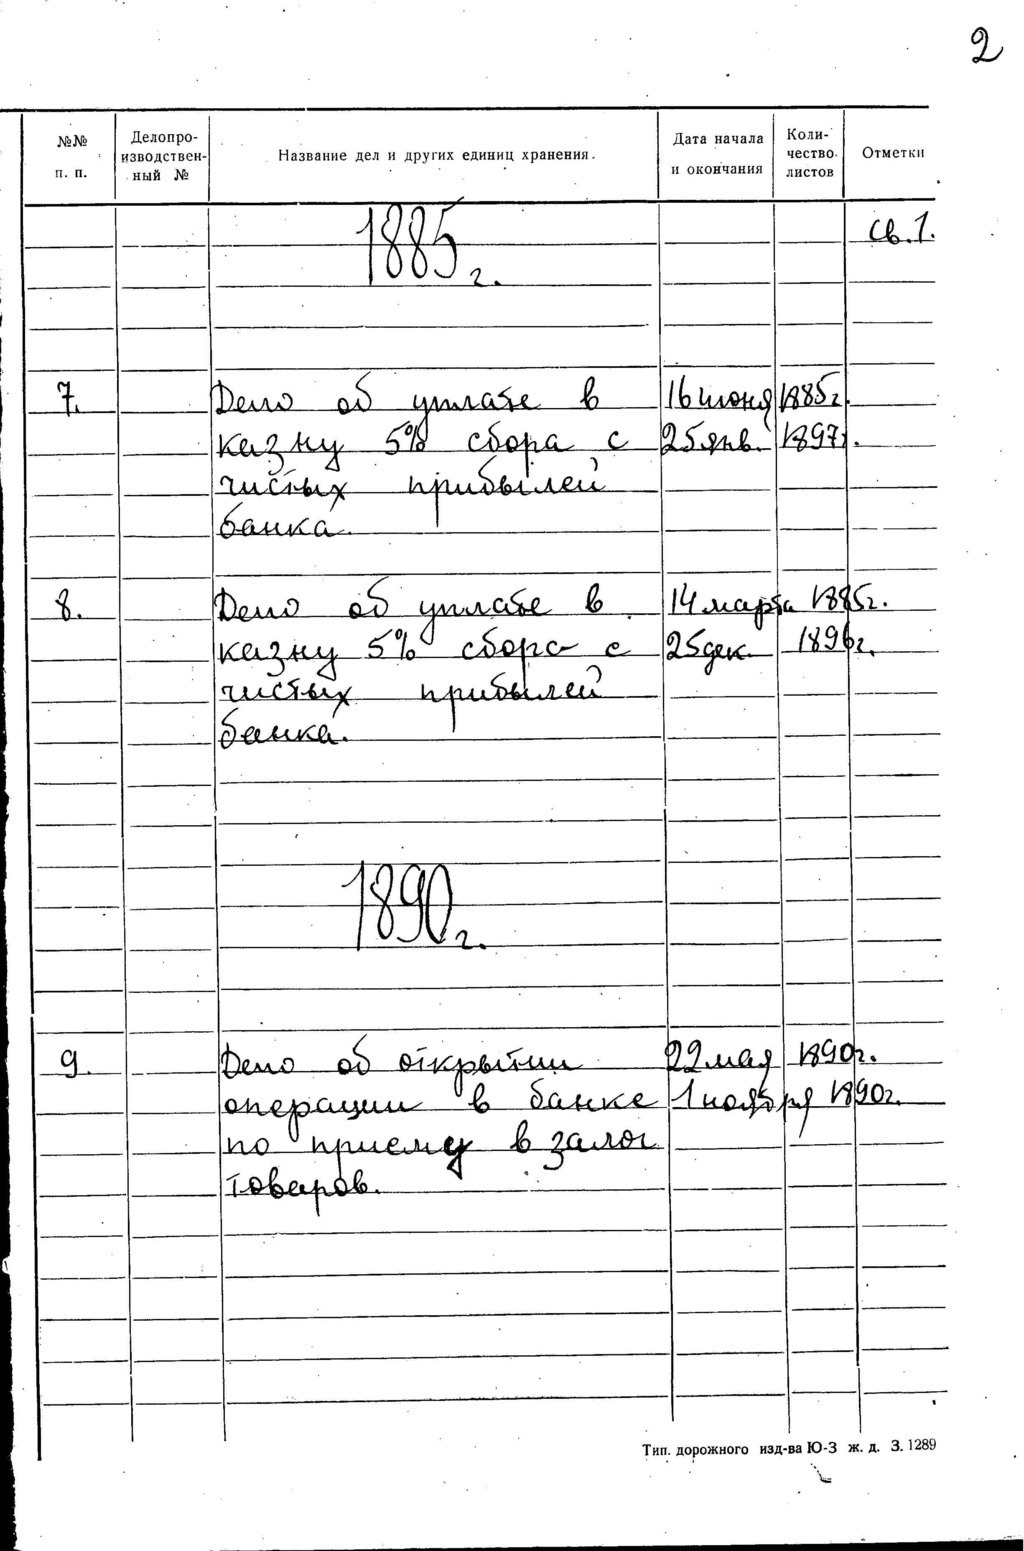 2
№№ п. п. | Делопро-изводствен-ный № | Название дел и других единиц хранения. | Дата начала и окончания | Коли-чество листов | Отметки
1885 г. | св. 1.
7. | Дело об уплате в | 16 июня 1885 г.
казну 5% сбора с | 25 янв. 1897 г.
чистых прибылей
банка.
8. | Дело об уплате в | 14 марта 1885 г.
казну 5% сбора с | 25 дек. 1896 г.
чистых прибылей
банка.
1890 г.
9. | Дело об открытии | 22 мая 1890 г.
операции в банке | 1 ноября 1890 г.
по приему в залог
товаров.
Тип. дорожного изд-ва Ю-З ж. д. З. 1289